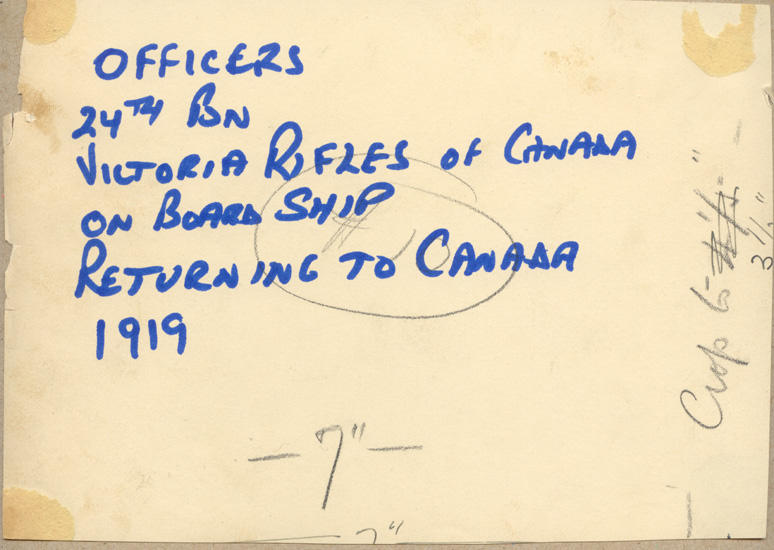 OFFICERS
24TH BN
VICTORIA RIFLES OF CANADA
ON BOARD SHIP
RETURNING TO CANADA
1919
— 7" —
7"
Crop to
3 1/2"